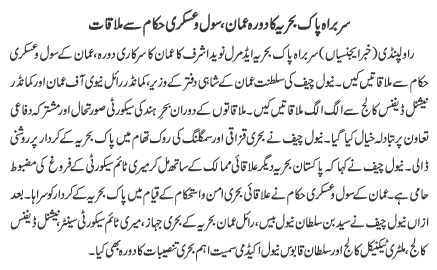 سربراہ پاک بحریہ کا دورہ عمان، سول و عسکری حکام سے ملاقات
راولپنڈی (خبر ایجنسیاں) سربراہ پاک بحریہ ایڈمرل نوید اشرف کا عمان کا سرکاری دورہ، عمان کے سول و عسکری
حکام سے ملاقاتیں کیں۔ نیول چیف کی سلطنت عمان کے شاہی دفتر کے وزیر، کمانڈر رائل نیوی آف عمان اور کمانڈر
نیشنل ڈیفنس کالج سے الگ الگ ملاقاتیں کیں۔ ملاقاتوں کے دوران بحر ہند کی سیکورٹی صورتحال اور مشترکہ دفاعی
تعاون پر تبادلہ خیال کیا گیا۔ نیول چیف نے بحری قزاقی اور سمگلنگ کی روک تھام میں پاک بحریہ کے کردار پر روشنی
ڈالی۔ نیول چیف نے کہا کہ پاکستان بحریہ دیگر علاقائی ممالک کے ساتھ مل کر میری ٹائم سیکورٹی کے فروغ کی مضبوط
حامی ہے۔ عمان کے سول و عسکری حکام نے علاقائی بحری امن و استحکام کے قیام میں پاک بحریہ کے کردار کو سراہا۔ بعد
ازاں نیول چیف نے سید بن سلطان نیول بیس، رائل عمان بحریہ کے بحری جہاز، میری ٹائم سیکورٹی سینٹر، نیشنل ڈیفنس
کالج، ملٹری ٹیکنیکل کالج اور سلطان قابوس نیول اکیڈمی سمیت اہم بحری تنصیبات کا دورہ بھی کیا۔